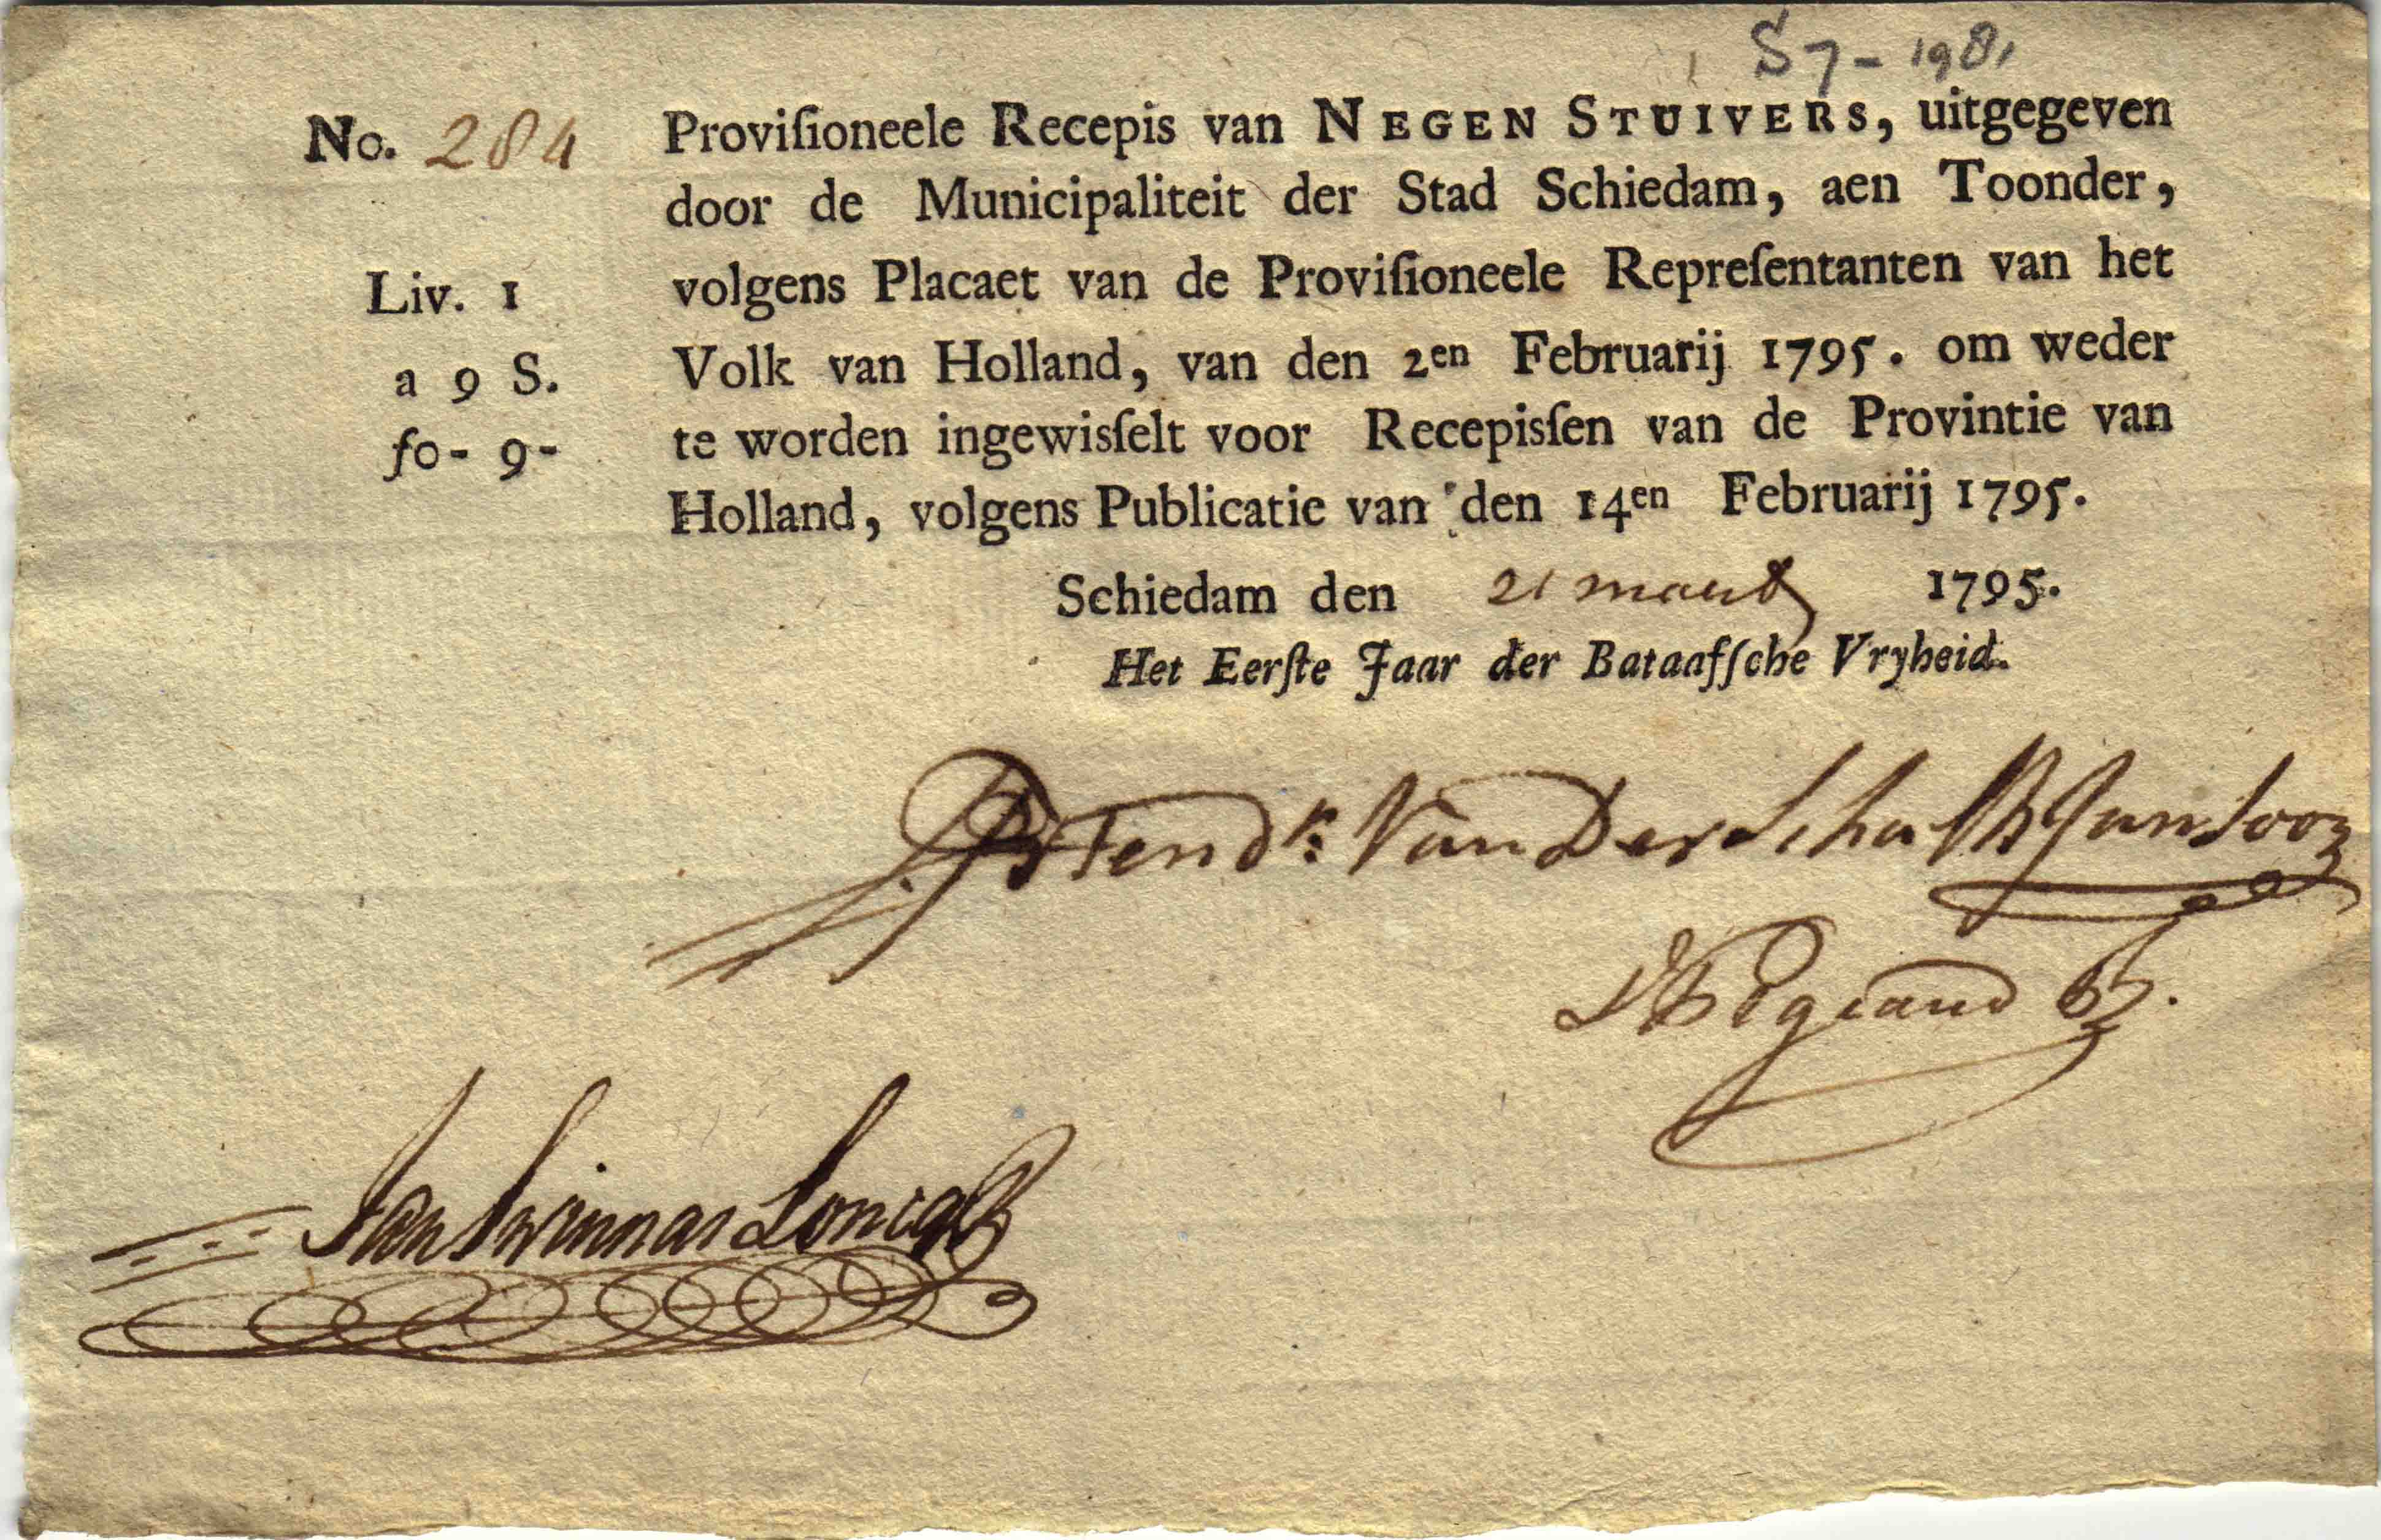 S 7 - 198,
No. 284 Proviſioneele Recepis van NEGEN STUIVERS, uitgegeven
door de Municipaliteit der Stad Schiedam, aen Toonder,
Liv. 1 volgens Placaet van de Proviſioneele Repreſentanten van het
a 9 S. Volk van Holland, van den 2en Februarij 1795. om weder
fo- 9- te worden ingewisſelt voor Recepisſen van de Provintie van
Holland, volgens Publicatie van den 14en Februarij 1795.
Schiedam den 21 maart 1795.
Het Eerſte Jaar der Bataafſche Vryheid.
Hendk: Van Der Schalk Janſooz
Jan Swinnas Loncq